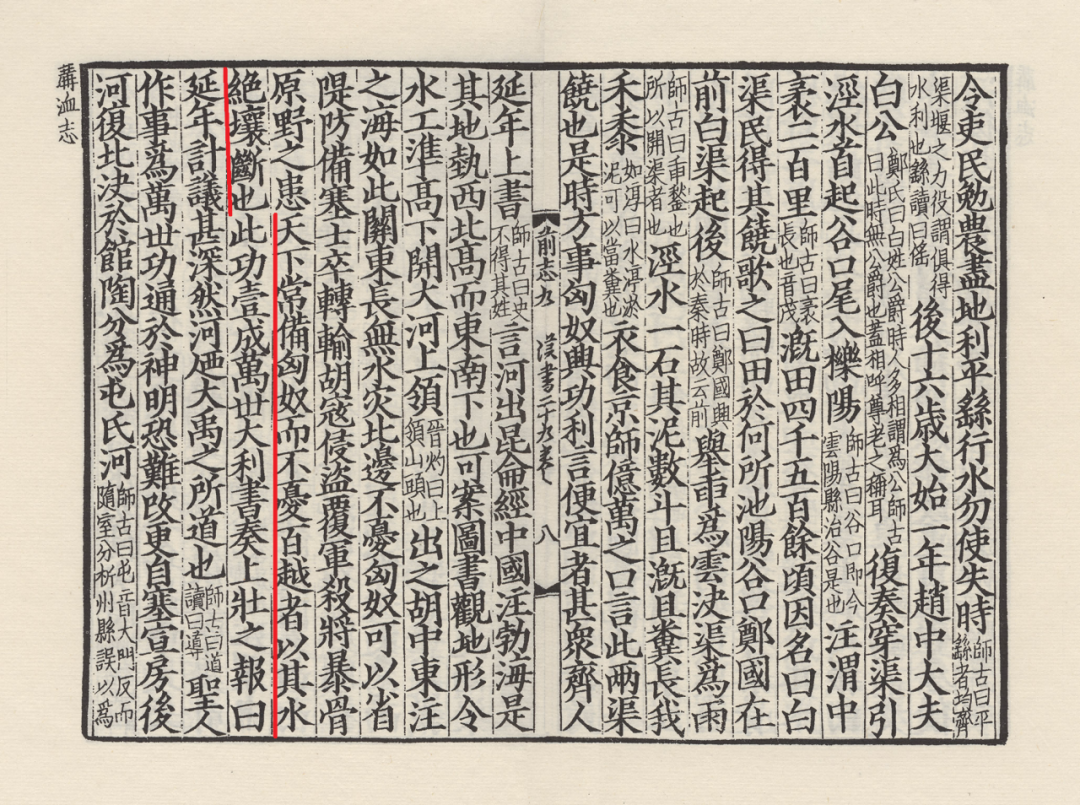 令吏民勉農盡地利平繇行水勿使失時師古曰平繇者均齊
渠堰之力役謂俱得水利也繇讀曰徭後十六歲大始二年趙中大夫
白公鄭氏曰白姓公爵時人多相謂爲公師古曰此時無公爵也蓋相呼尊老之稱耳復奏穿渠引
涇水首起谷口尾入櫟陽師古曰谷口即今雲陽縣治谷是也注渭中
袤二百里師古曰袤長也音茂溉田四千五百餘頃因名曰白
渠民得其饒歌之曰田於何所池陽谷口鄭國在
前白渠起後師古曰鄭國興於秦時故云前舉臿爲雲決渠爲雨
師古曰臿鍫也所以開渠者也涇水一石其泥數斗且溉且糞長我
禾黍如淳曰水渟淤泥可以當糞也衣食京師億萬之口言此兩渠
饒也是時方事匈奴興功利言便宜者甚衆齊人
前志九 漢書二十九卷 八
延年上書師古曰史不得其姓言河出昆侖經中國注勃海是
其地埶西北髙而東南下也可案圖書觀地形令
水工準髙下開大河上領晉灼曰上領山頭也出之胡中東注
之海如此關東長無水災北邊不憂匈奴可以省
隄防備塞士卒轉輸胡寇侵盜覆軍殺將暴骨
原野之患天下常備匈奴而不憂百越者以其水
絕壤斷也此功壹成萬世大利書奏上壯之報曰
延年計議甚深然河迺大禹之所道也師古曰道讀曰導聖人
作事爲萬世功通於神明恐難改更自塞宣房後
河復北決於館陶分爲屯氏河師古曰屯音大門反而隨室分析州縣誤以爲
溝洫志